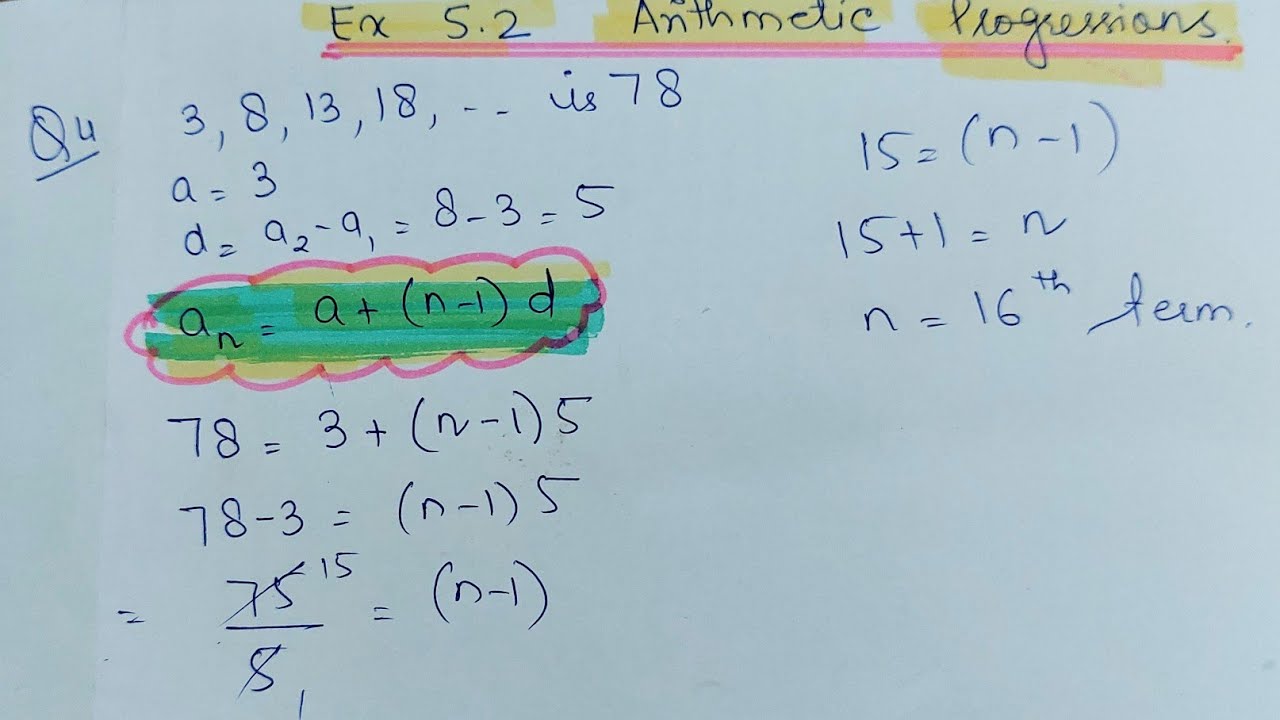 Ex 5.2 Arithmetic Progressions.
Q4 3, 8, 13, 18, -- is 78
a = 3
d = a₂ - a₁ = 8 - 3 = 5
aₙ = a + (n-1) d
78 = 3 + (n-1) 5
78 - 3 = (n-1) 5
= 75 15 / 5 1 = (n-1)
15 = (n-1)
15 + 1 = n
n = 16th term.